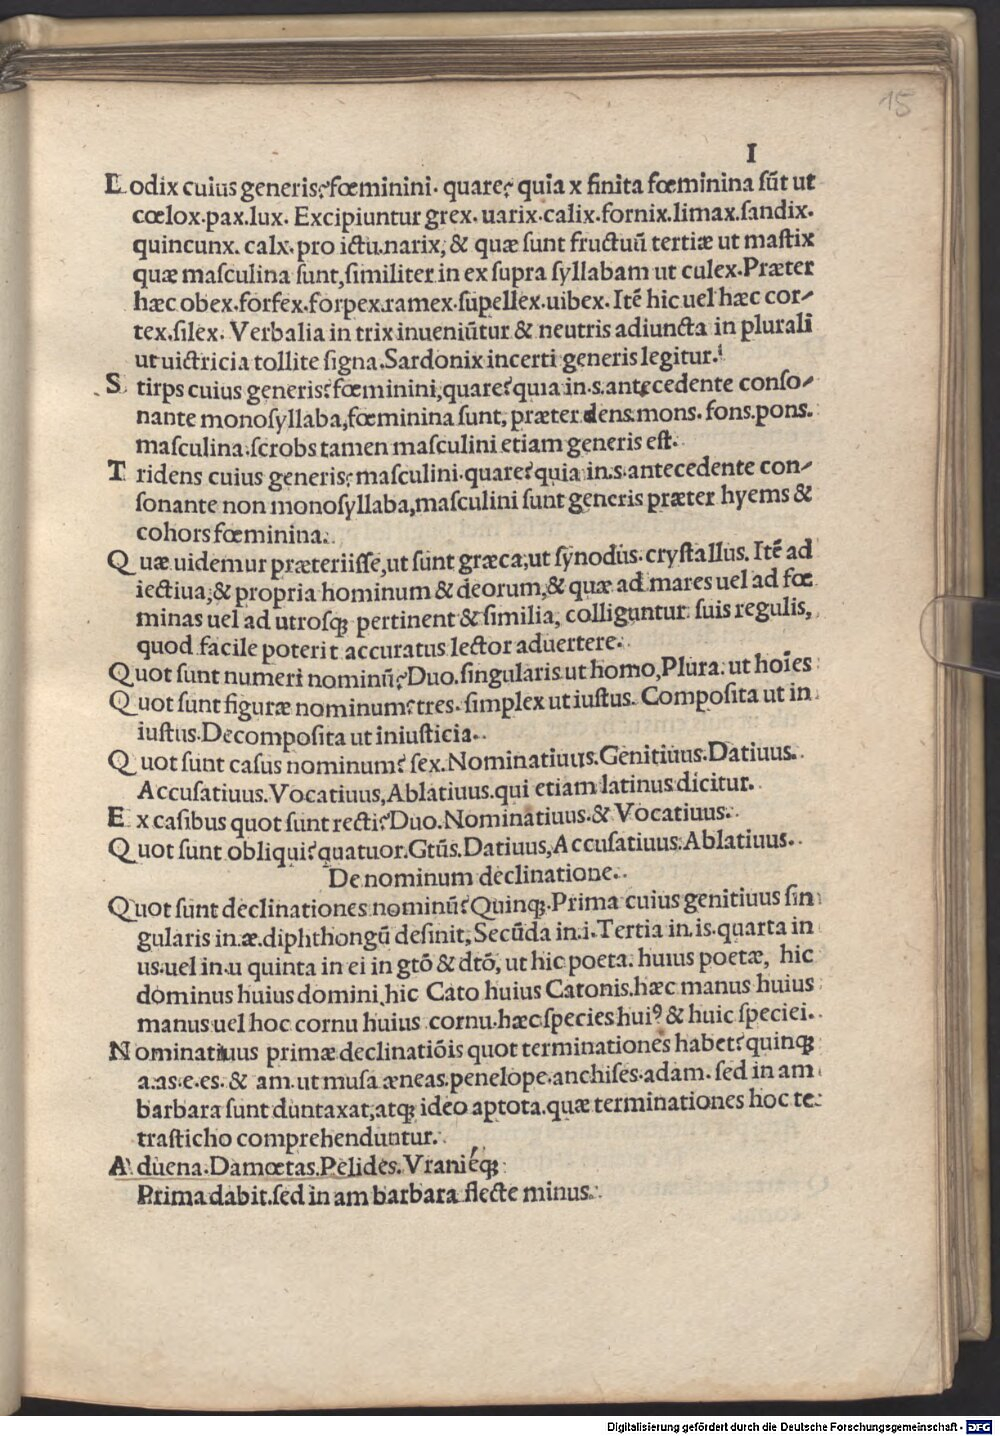 15
I
Lodix cuius generis? fœminini. quare? quia x finita fœminina sūt ut
cœlox.pax.lux. Excipiuntur grex. uarix.calix.fornix.limax.sandix.
quincunx. calx.pro ictu.narix, & quæ sunt fructuū tertiæ ut mastix
quæ masculina sunt,similiter in ex supra syllabam ut culex.Præter
hæc obex.forfex.forpex.ramex.supellex.uibex. Itē hic uel hæc cor-
tex.silex. Verbalia in trix inueniūtur & neutris adiuncta in plurali
ut uictricia tollite signa.Sardonix incerti generis legitur.
Stirps cuius generis? fœminini,quare? quia in.s.antecedente conso-
nante monosyllaba,fœminina sunt, præter dens.mons. fons.pons.
masculina.scrobs tamen masculini etiam generis est.
Tridens cuius generis? masculini.quare? quia in.s.antecedente con-
sonante non monosyllaba,masculini sunt generis præter hyems &
cohors fœminina.
Quæ uidemur præteriisse,ut sunt græca,ut synodus.crystallus. Itē ad
iectiua,& propria hominum & deorum,& quæ ad mares uel ad fœ
minas uel ad utrosqꝫ pertinent & similia, colliguntur suis regulis,
quod facile poterit accuratus lector aduertere.
Quot sunt numeri nominū? Duo.singularis ut homo,Plura. ut hoīes
Quot sunt figuræ nominum? tres. simplex ut iustus. Composita ut in
iustus.Decomposita ut iniusticia.
Quot sunt casus nominum? sex.Nominatiuus.Genitiuus.Datiuus.
Accusatiuus.Vocatiuus,Ablatiuus.qui etiam latinus dicitur.
Ex casibus quot sunt recti? Duo.Nominatiuus.& Vocatiuus.
Quot sunt obliqui? quatuor.Gtūs.Datiuus,Accusatiuus.Ablatiuus.
De nominum declinatione.
Quot sunt declinationes nominū? Quinqꝫ.Prima cuius genitiuus sin
gularis in.æ.diphthongū desinit, Secūda in.i.Tertia in.is.quarta in
us.uel in.u quinta in ei in gtō & dtō, ut hic poeta. huius poetæ, hic
dominus huius domini.hic Cato huius Catonis.hæc manus huius
manus uel hoc cornu huius cornu.hæc species huiꝰ & huic speciei.
Nominatiuus primæ declinatiōis quot terminationes habet? quinqꝫ
a.as.e.es. & am.ut musa æneas.penelope.anchises.adam. sed in am
barbara sunt duntaxat,atqꝫ ideo aptota.quæ terminationes hoc te
trasticho comprehenduntur.
Aduena.Damœtas.Pelides.Vraniéqꝫ
Prima dabit.sed in am barbara flecte minus.
Digitalisierung gefördert durch die Deutsche Forschungsgemeinschaft - DFG